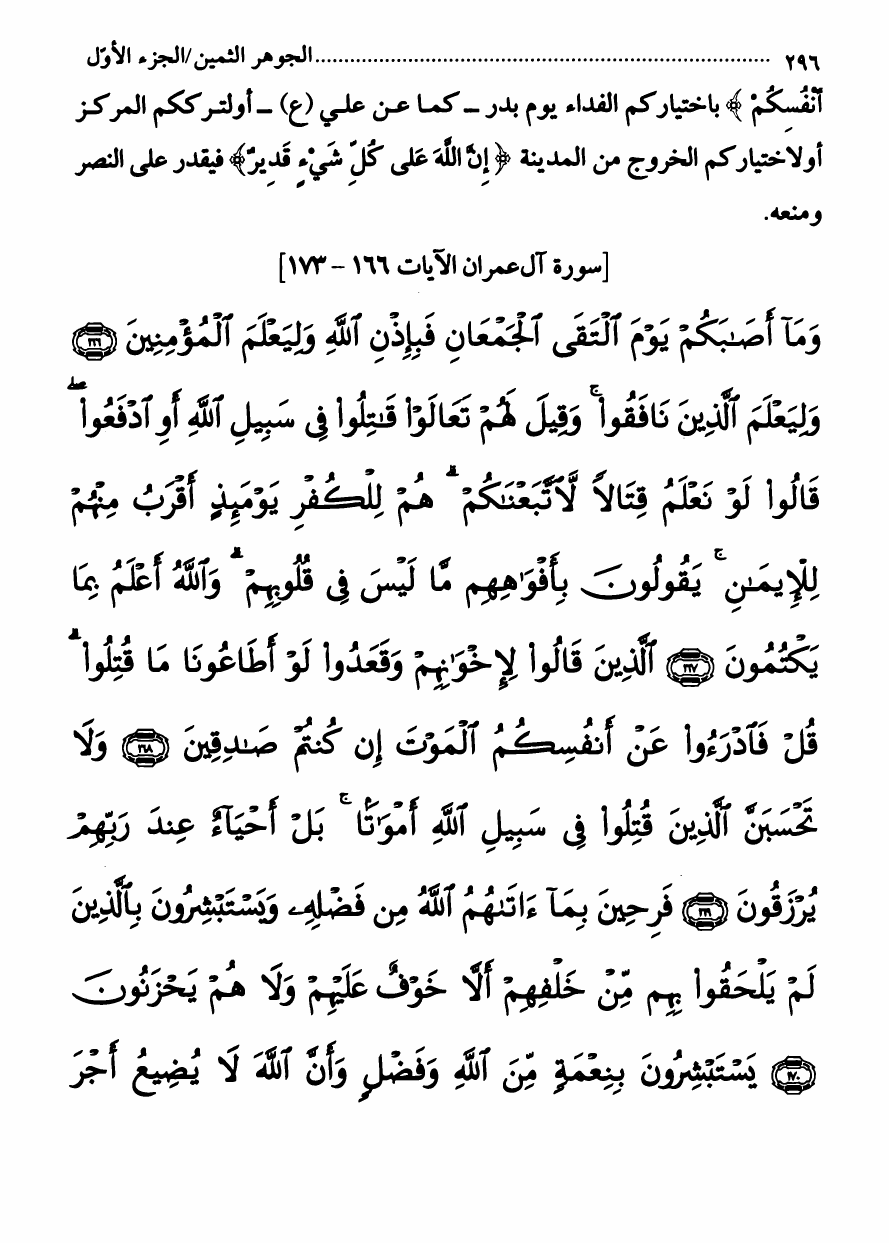 ٢٩٦ ........................................................................ الجوهر الثمين/الجزء الأوّل
أَنْفُسِكُمْ﴾ باختياركم الفداء يوم بدر ــ كما عن علي (ع) ــ أولترككم المركز
أولاختياركم الخروج من المدينة ﴿إِنَّ اللَّهَ عَلى كُلِّ شَيْءٍ قَدِيرٌ﴾ فيقدر على النصر
ومنعه.
[سورة آل‌عمران الآيات ١٦٦ – ١٧٣]
وَمَآ أَصَـٰبَكُمْ يَوْمَ ٱلْتَقَى ٱلْجَمْعَانِ فَبِإِذْنِ ٱللَّهِ وَلِيَعْلَمَ ٱلْمُؤْمِنِينَ ﴿١٦٦﴾
وَلِيَعْلَمَ ٱلَّذِينَ نَافَقُوا۟ ۚ وَقِيلَ لَهُمْ تَعَالَوْا۟ قَـٰتِلُوا۟ فِى سَبِيلِ ٱللَّهِ أَوِ ٱدْفَعُوا۟ ۖ
قَالُوا۟ لَوْ نَعْلَمُ قِتَالًا لَّٱتَّبَعْنَـٰكُمْ ۗ هُمْ لِلْكُفْرِ يَوْمَئِذٍ أَقْرَبُ مِنْهُمْ
لِلْإِيمَـٰنِ ۚ يَقُولُونَ بِأَفْوَٰهِهِم مَّا لَيْسَ فِى قُلُوبِهِمْ ۗ وَٱللَّهُ أَعْلَمُ بِمَا
يَكْتُمُونَ ﴿١٦٧﴾ ٱلَّذِينَ قَالُوا۟ لِإِخْوَٰنِهِمْ وَقَعَدُوا۟ لَوْ أَطَاعُونَا مَا قُتِلُوا۟ ۗ
قُلْ فَٱدْرَءُوا۟ عَنْ أَنفُسِكُمُ ٱلْمَوْتَ إِن كُنتُمْ صَـٰدِقِينَ ﴿١٦٨﴾ وَلَا
تَحْسَبَنَّ ٱلَّذِينَ قُتِلُوا۟ فِى سَبِيلِ ٱللَّهِ أَمْوَٰتًۢا ۚ بَلْ أَحْيَآءٌ عِندَ رَبِّهِمْ
يُرْزَقُونَ ﴿١٦٩﴾ فَرِحِينَ بِمَآ ءَاتَىٰهُمُ ٱللَّهُ مِن فَضْلِهِۦ وَيَسْتَبْشِرُونَ بِٱلَّذِينَ
لَمْ يَلْحَقُوا۟ بِهِم مِّنْ خَلْفِهِمْ أَلَّا خَوْفٌ عَلَيْهِمْ وَلَا هُمْ يَحْزَنُونَ
﴿١٧٠﴾ يَسْتَبْشِرُونَ بِنِعْمَةٍ مِّنَ ٱللَّهِ وَفَضْلٍ وَأَنَّ ٱللَّهَ لَا يُضِيعُ أَجْرَ